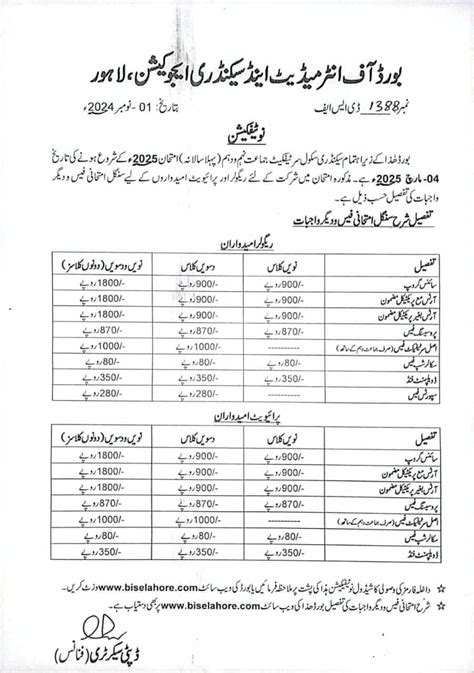 بورڈ آف انٹرمیڈیٹ اینڈ سیکنڈری ایجوکیشن، لاہور
نمبر 1388 ڈی ایس ایف بتاریخ: 01- نومبر 2024ء
نوٹیفکیشن
بورڈ ھذا کے زیر اہتمام سیکنڈری سکول سرٹیفکیٹ جماعت نہم و دہم (پہلا سالانہ) امتحان 2025ء کے شروع ہونے کی تاریخ
04- مارچ 2025ء ہے۔ مذکورہ امتحان میں شرکت کے لئے ریگولر اور پرائیویٹ امیدواروں کے لیے سنگل امتحانی فیس و دیگر
واجبات کی تفصیل حسب ذیل ہے۔
تفصیل شرح سنگل امتحانی فیس و دیگر واجبات
ریگولر امیدواران
تفصیل نویں کلاس دسویں کلاس نویں و دسویں (دونوں کلاسز)
سائنس گروپ 900/-روپے 900/-روپے 1800/-روپے
آرٹس مع پریکٹیکل مضمون 900/-روپے 900/-روپے 1800/-روپے
آرٹس بغیر پریکٹیکل مضمون 900/-روپے 900/-روپے 1800/-روپے
پروسیسنگ فیس 870/-روپے 870/-روپے 870/-روپے
اصل سرٹیفکیٹ فیس (صرف جماعت دہم کے ساتھ) ---------- 1000/-روپے 1000/-روپے
سکالرشپ فیس 80/-روپے 80/-روپے 80/-روپے
ڈویلپمنٹ فنڈ 350/-روپے 350/-روپے 350/-روپے
سپورٹس فیس 280/-روپے ---------- 280/-روپے
پرائیویٹ امیدواران
تفصیل نویں کلاس دسویں کلاس نویں و دسویں (دونوں کلاسز)
سائنس گروپ 900/-روپے 900/-روپے 1800/-روپے
آرٹس مع پریکٹیکل مضمون 900/-روپے 900/-روپے 1800/-روپے
آرٹس بغیر پریکٹیکل مضمون 900/-روپے 900/-روپے 1800/-روپے
پروسیسنگ فیس 870/-روپے 870/-روپے 870/-روپے
اصل سرٹیفکیٹ فیس (صرف جماعت دہم کے ساتھ) ---------- 1000/-روپے 1000/-روپے
سکالرشپ فیس 80/-روپے 80/-روپے 80/-روپے
ڈویلپمنٹ فنڈ 350/-روپے 350/-روپے 350/-روپے
☆ داخلہ فارمز کی وصولی کا شیڈول نوٹیفکیشن ہذا کی پشت پر ملاحظہ فرمائیں یا بورڈ کی ویب سائٹ www.biselahore.com وزٹ کریں۔
☆ شرح امتحانی فیس و دیگر واجبات کی تفصیل بورڈ ھذا کی ویب سائٹ www.biselahore.com پر بھی دستیاب ہے۔
ڈپٹی سیکرٹری (فنانس)